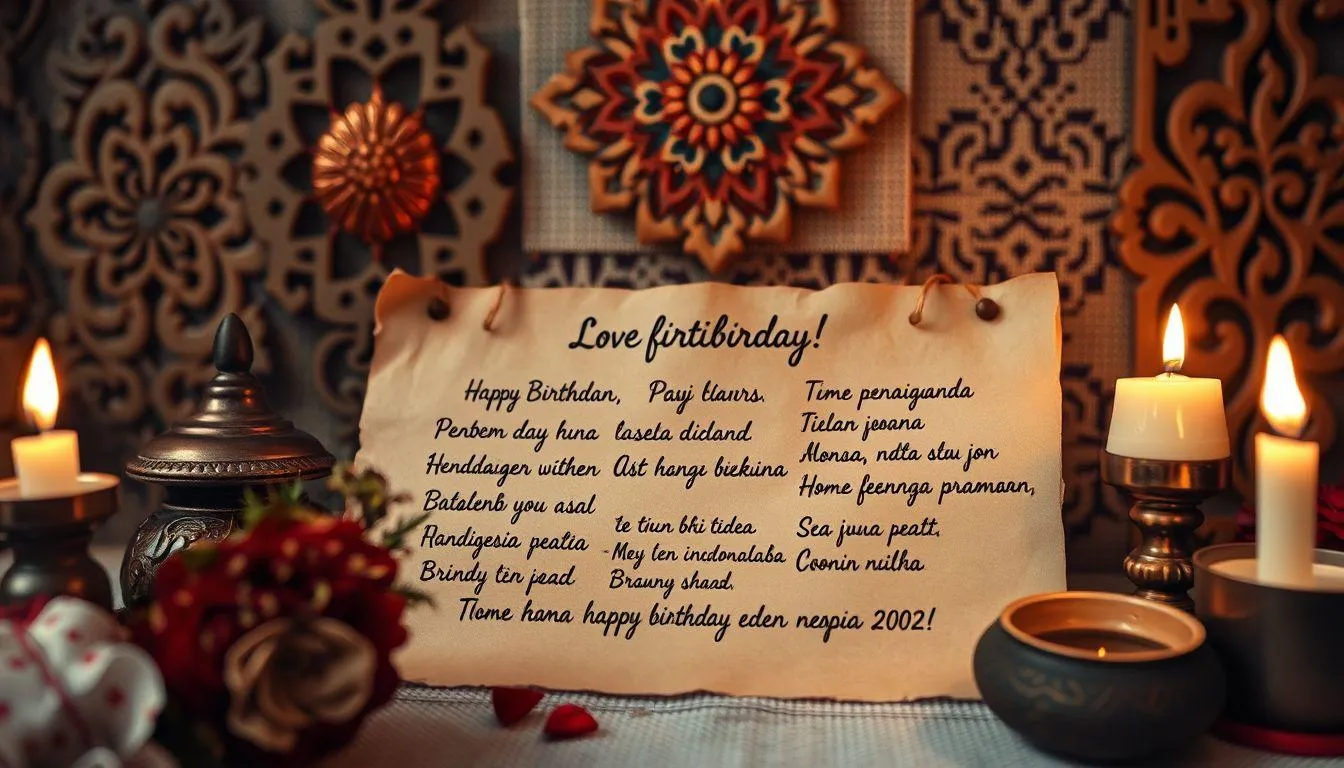 Love firtibirday!
Happy Birthdan,
Penbem day huna
Henddaiger withen
Batalenb you asal
Handigesia peatia
Brindy ten jead
Payj tlaurs.
lasela didand
Ast hangi biekuina
te tiun bhi tidea
-Mey ten incdonalaba
Brauny shaad.
Time penaiganda
Tielan jeoana
Alonsa, ndta stu jon
Home feennga pramaan,
Sea juua peatt.
Coonin nuilha
Tlome hama happy birthday eden nespia 2002!